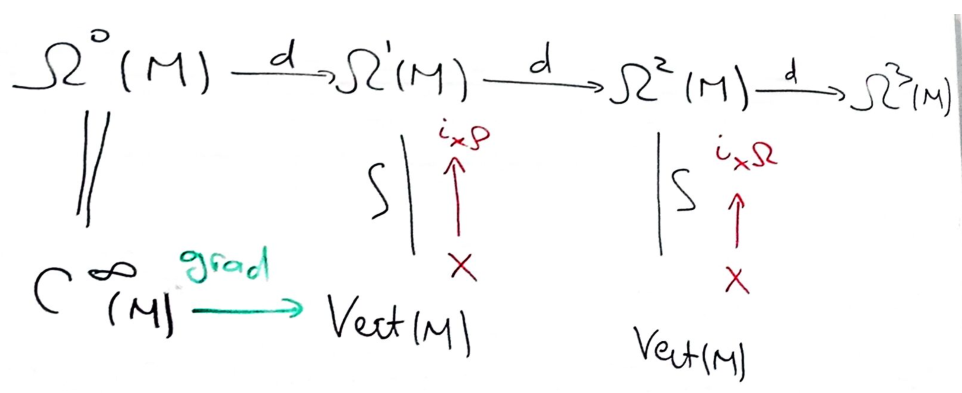 Ω⁰(M) —d→ Ω¹(M) —d→ Ω²(M) —d→ Ω³(M)
|| S| i_x g ↑ X |S i_x Ω ↑ X
C^∞(M) —grad→ Vect(M) Vect(M)